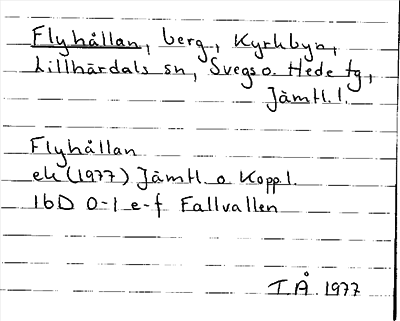 Flyhållan, berg, Kyrkbyn,
Lillhärdals sn, Svegs o. Hede tg,
Jämtl. l.
Flyhållan
ek (1977) Jämtl o Koppl.
16D 0-1 e-f Fallvallen
T Å. 1977